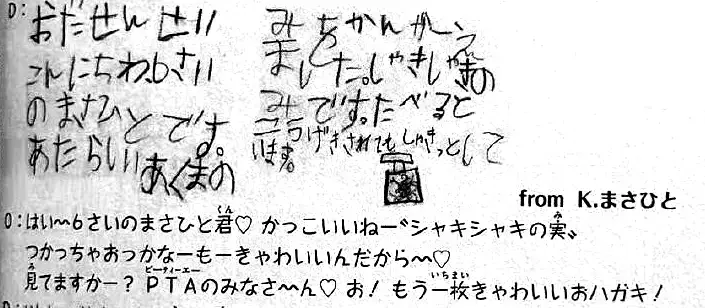 D：おだせんせい
こんにちわ。6さい
のまさひとです。
あたらしいあくまの
みをかんがーえ
ました。しゃきしゃきの
みです。たべると
こうげきされてもしゃきっとして
います。
from K.まさひと
くん
み
O：はい〜6さいのまさひと君♡ かっこいいねー〝シャキシャキの実〟
つかっちゃおっかなーもーきゃわいいんだから〜♡
み ピーティーエー いちまい
見てますかー？ PTAのみなさ〜ん♡ お！ もう一枚きゃわいいおハガキ！